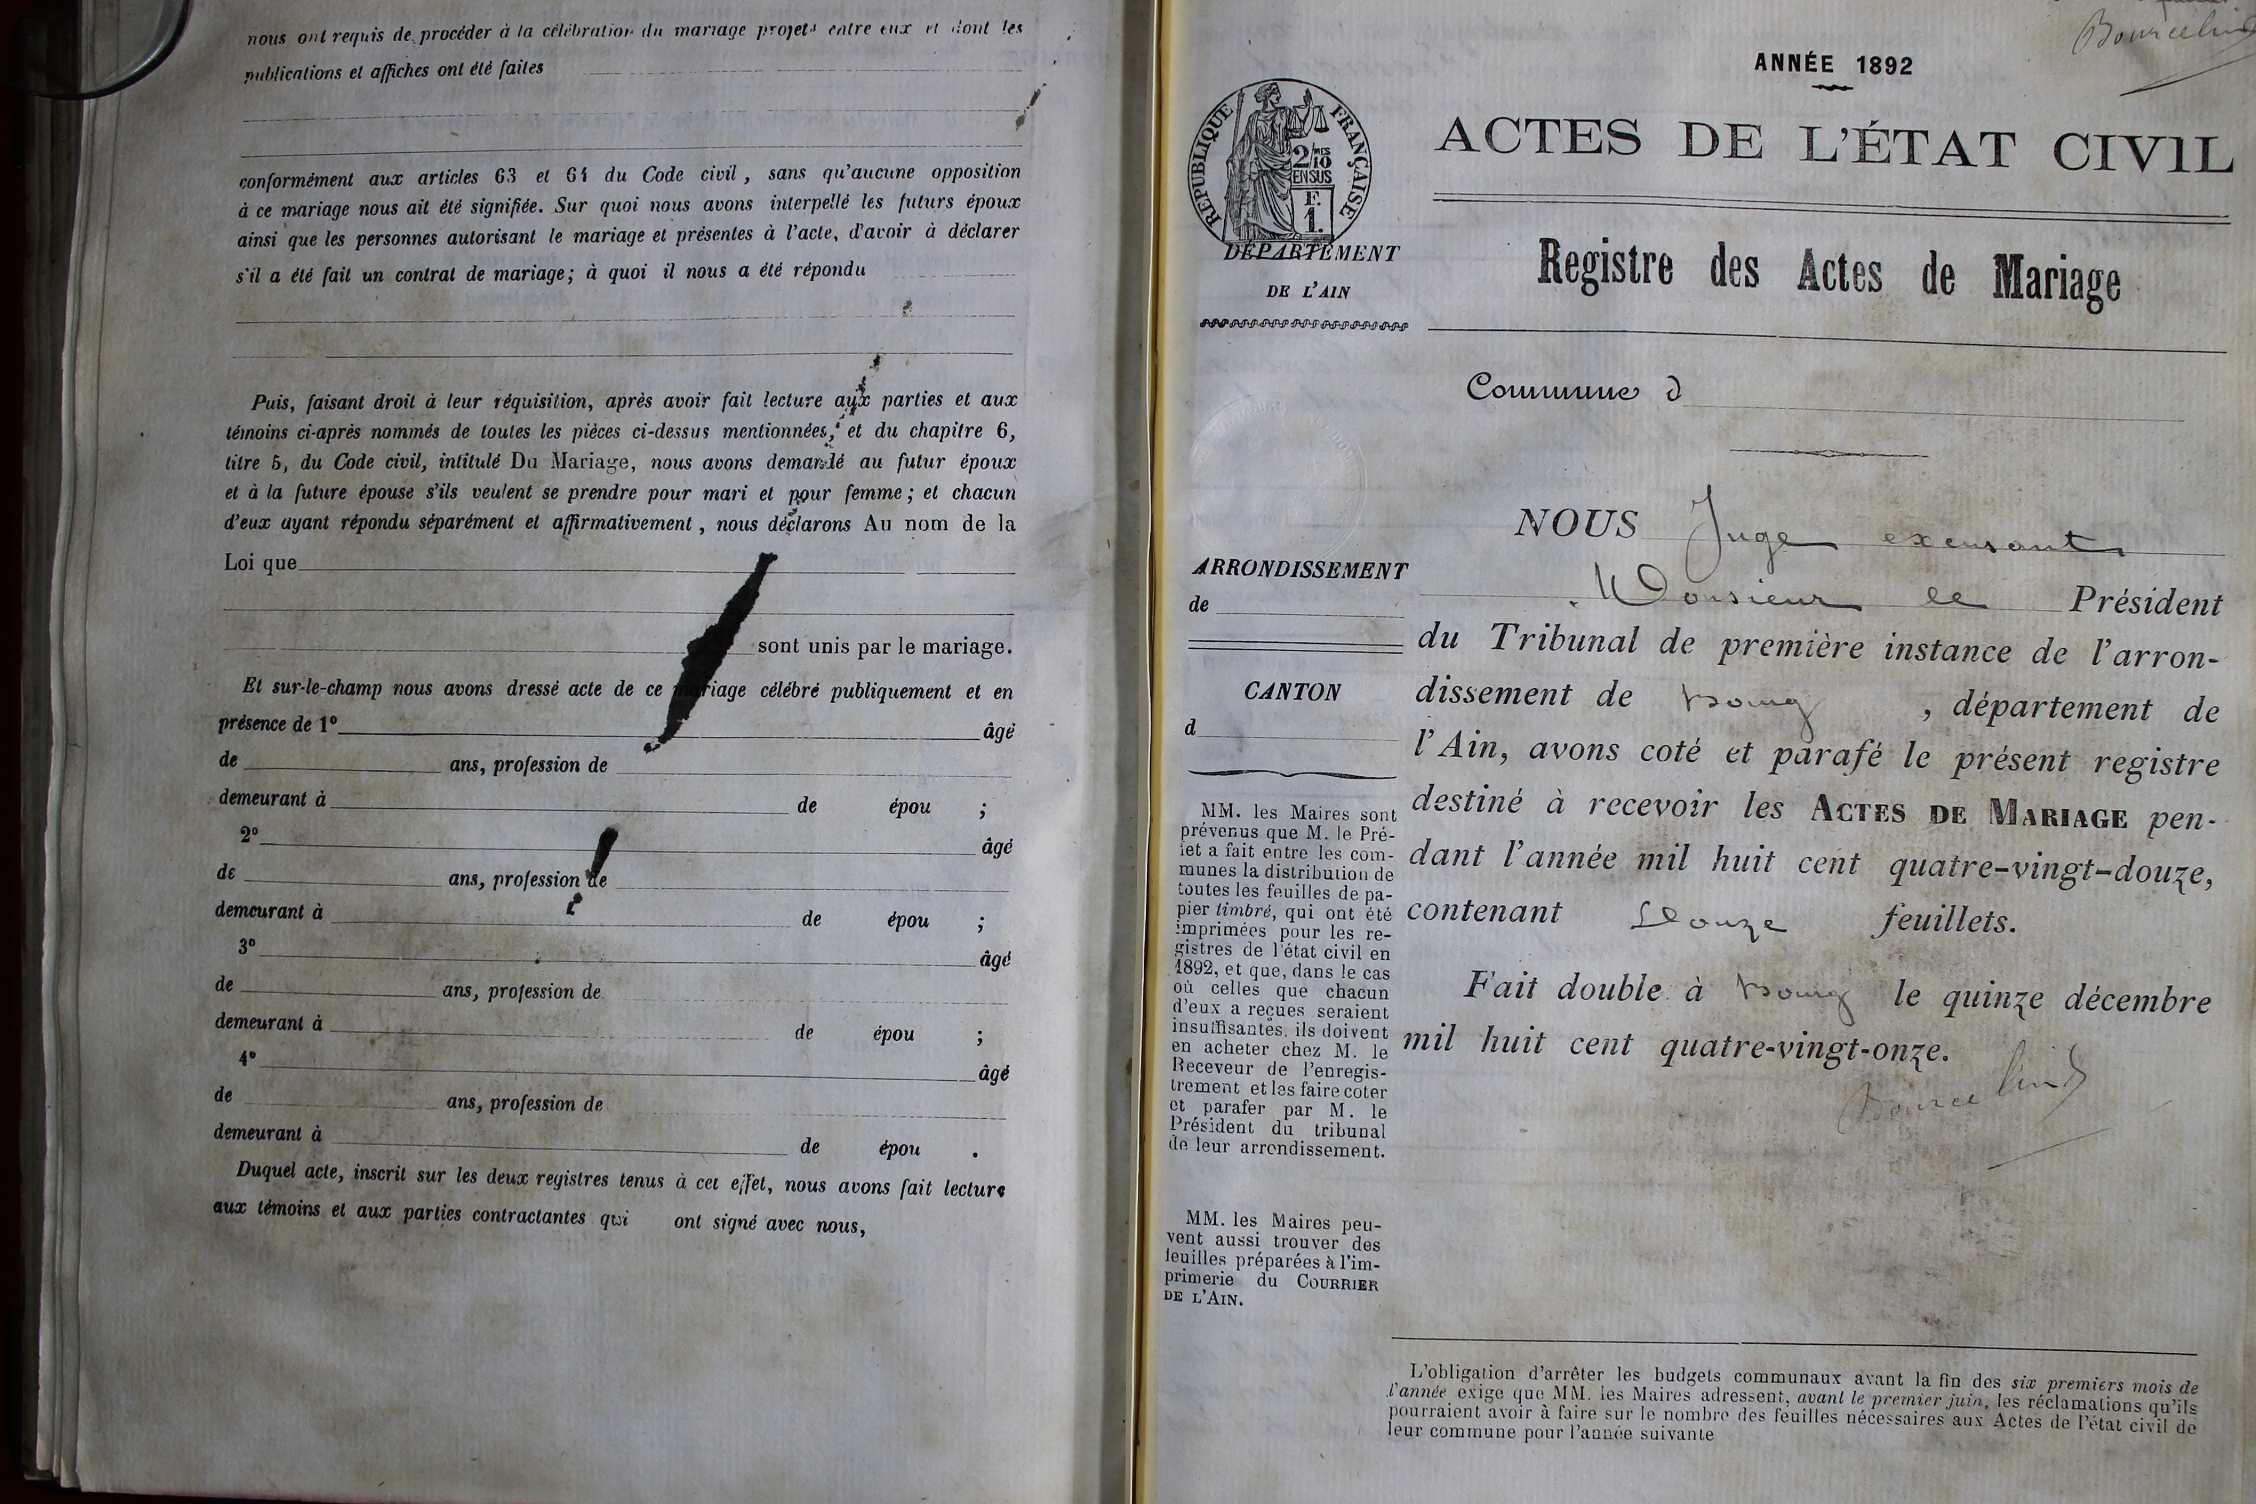 nous ont requis de procéder à la célébration du mariage projeté entre eux et dont les
publications et affiches ont été faites
conformément aux articles 63 et 64 du Code civil, sans qu'aucune opposition
à ce mariage nous ait été signifiée. Sur quoi nous avons interpellé les futurs époux
ainsi que les personnes autorisant le mariage et présentes à l'acte, d'avoir à déclarer
s'il a été fait un contrat de mariage; à quoi il nous a été répondu
Puis, faisant droit à leur réquisition, après avoir fait lecture aux parties et aux
témoins ci-après nommés de toutes les pièces ci-dessus mentionnées, et du chapitre 6,
titre 5, du Code civil, intitulé Du Mariage, nous avons demandé au futur époux
et à la future épouse s'ils veulent se prendre pour mari et pour femme; et chacun
d'eux ayant répondu séparément et affirmativement, nous déclarons Au nom de la
Loi que
sont unis par le mariage.
Et sur-le-champ nous avons dressé acte de ce mariage célébré publiquement et en
présence de 1º âgé
de ans, profession de
demeurant à de épou ;
2º âgé
de ans, profession de
demeurant à de épou ;
3º âgé
de ans, profession de
demeurant à de épou ;
4º âgé
de ans, profession de
demeurant à de épou .
Duquel acte, inscrit sur les deux registres tenus à cet effet, nous avons fait lecture
aux témoins et aux parties contractantes qui ont signé avec nous,
Bourcelin
ANNÉE 1892
ACTES DE L'ÉTAT CIVIL
RÉPUBLIQUE FRANÇAISE
2/10 MES
EN SUS
F.
1.
DÉPARTEMENT
DE L'AIN
Registre des Actes de Mariage
Commune d
ARRONDISSEMENT
de
CANTON
d
MM. les Maires sont
prévenus que M. le Pré-
fet a fait entre les com-
munes la distribution de
toutes les feuilles de pa-
pier timbré, qui ont été
imprimées pour les re-
gistres de l'état civil en
1892, et que, dans le cas
où celles que chacun
d'eux a reçues seraient
insuffisantes, ils doivent
en acheter chez M. le
Receveur de l'enregis-
trement et les faire coter
et parafer par M. le
Président du tribunal
de leur arrondissement.
MM. les Maires peu-
vent aussi trouver des
feuilles préparées à l'im-
primerie du COURRIER
DE L'AIN.
NOUS Juge excusant
Monsieur le Président
du Tribunal de première instance de l'arron-
dissement de Bourg , département de
l'Ain, avons coté et parafé le présent registre
destiné à recevoir les ACTES DE MARIAGE pen-
dant l'année mil huit cent quatre-vingt-douze,
contenant Douze feuillets.
Fait double à Bourg le quinze décembre
mil huit cent quatre-vingt-onze.
Bourcelin
L'obligation d'arrêter les budgets communaux avant la fin des six premiers mois de
l'année exige que MM. les Maires adressent, avant le premier juin, les réclamations qu'ils
pourraient avoir à faire sur le nombre des feuilles nécessaires aux Actes de l'état civil de
leur commune pour l'année suivante